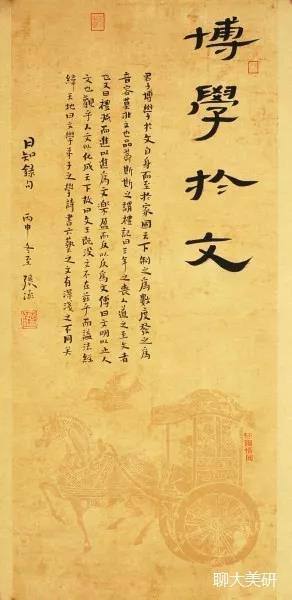 博學於文
君子博學於文自身而至於家國天下制之為數度發之為
音容莫非文也品節斯斯之謂禮記曰三年之喪人道之至文者
也又曰禮減而進以進為文樂盈而反以反為文傳曰文明以止人
文也觀乎人文以化成天下故曰文王既沒文不在茲乎而謚法經
緯天地曰文與弟子之學詩書六藝之文有深淺之不同矣
日知錄句 丙申冬至 張
聊大美研